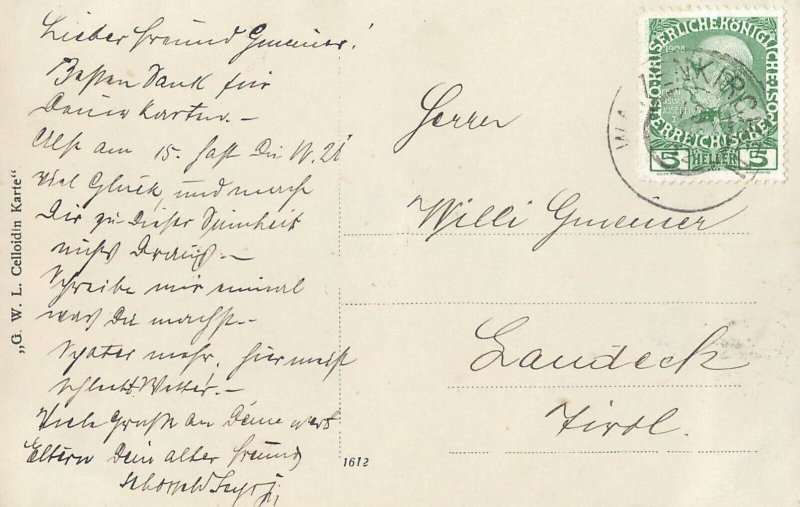 Lieber Freund Gmeiner!
Besten Dank für
Deine Karten.-
Also am 15. hast Du W. Ü
Viel Glück und mach
Dir zu dieser Dummheit
nichts draus.-
Schreibe mir einmal
was Du machst.-
Später mehr, hier meist
schlecht Wetter.-
Viele Grüße an Deine wert
Eltern Dein alter Freund
"G. W. L. Celloidin Karte"
1612
Herrn
Willi Gmeiner
Landeck
Tirol.
KAISERLICHE KÖNIGLICHE
ÖSTERREICHISCHE
1908
5 HELLER 5